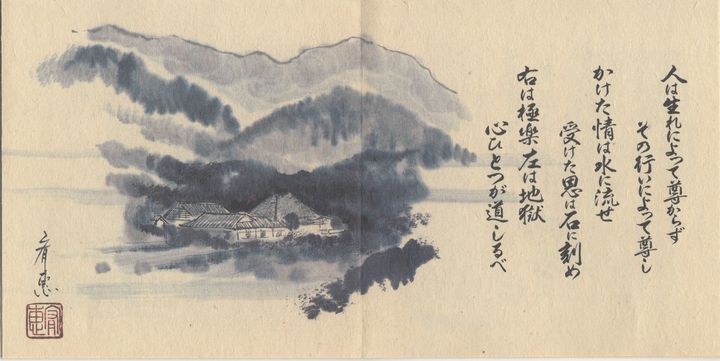 人は生れによって尊からず
その行いによって尊し
かけた情は水に流せ
受けた恩は石に刻め
右は極楽左は地獄
心ひとつが道しるべ